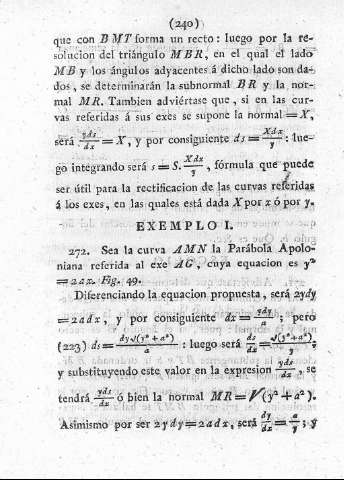 (240)
que con BMT forma un recto: luego por la re-
solucion del triángulo MBR, en el qual el lado
MB y los ángulos adyacentes á dicho lado son da-
dos, se determinarán la subnormal BR y la nor-
mal MR. Tambien adviértase que, si en las cur-
vas referidas á sus exes se supone la normal =X,
será yds/dx =X, y por consiguiente ds= Xdx/y : lue-
go integrando será s=S. Xdx/y , fórmula que puede
ser útil para la rectificacion de las curvas referidas
á los exes, en las quales está dada X por x ó por y.
EXEMPLO I.
272. Sea la curva AMN la Parábola Apolo-
niana referida al exe AG, cuya equacion es y²
=2ax. Fig. 49.
Diferenciando la equacion propuesta, será 2ydy
=2adx, y por consiguiente dx= ydy/a ; pero
(223) ds= dy√(y²+a²)/a : luego será ds/dx = √(y²+a²)/y ;
y substituyendo este valor en la expresion yds/dx , se
tendrá yds/dx ó bien la normal MR=√(y²+a²).
Asimismo por ser 2ydy=2adx, será dy/dx = a/y ; y